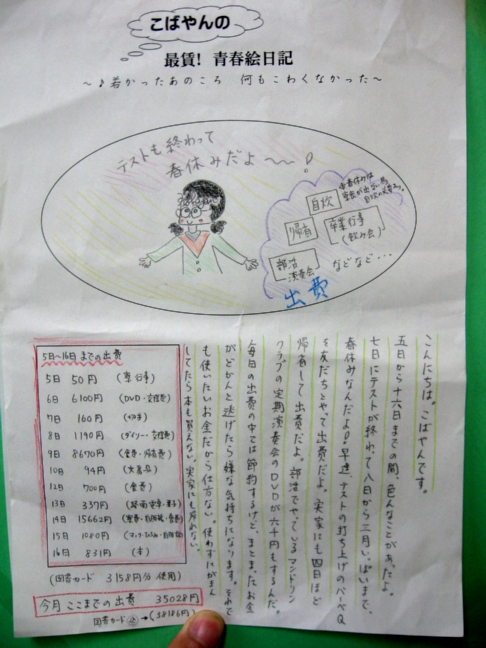 こばやんの
最賃! 青春絵日記
～♪若かったあのころ 何もこわくなかった～
テストも終わって
春休みだよ～～!
自炊
帰省
卒業行事
(飲み会)
部活
演奏会
などなど・・・
出費
こんにちは。こばやんです。
五日から十六日までの間、色んなことがあったよ。
七日にテストが終わって八日から三月いっぱいまで、
春休みなんだよ!早速、テストの打ち上げのバーベQ
を友だちとやって出費だよ。実家にも四日ほど
帰省して出費だよ。部活でやっているマンドリン
クラブの定期演奏会のDVDが六千円もするんだ。
毎日の出費の中では節約するけど、まとまったお金
がどかんと逃げたら嫌な気持ちになります。それで
も使いたいお金だから仕方ない。使わずにがまん
してたら本も買えない。実家にも帰れない。
5日～16日までの出費
5日 50円
6日 6100円 (DVD・交通費)
7日 160円
8日 1190円 (ダイソー・交通費)
9日 8670円
10日 94円 (文具品)
12日 700円 (食費)
13日 337円
14日 15662円
15日 1080円
16日 831円 (本)
(図書カード 3158円分 使用)
今月 ここまでの出費 35028円
図書カード込→(38186円)